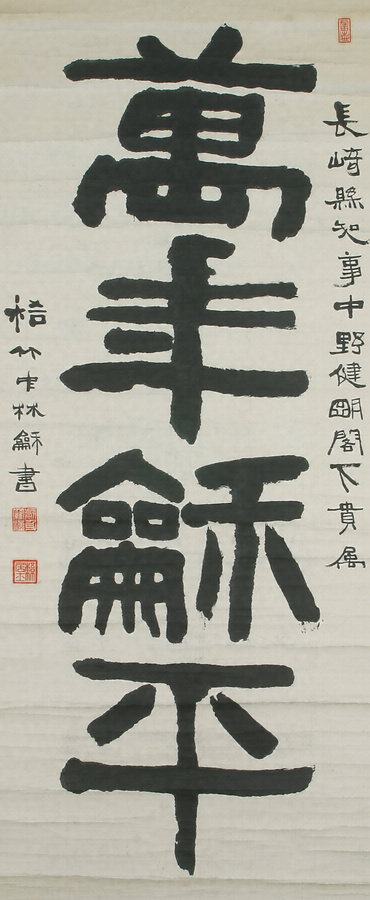 長﨑縣知事中野健朙閣下貴属
萬年龢平
梧竹中林龢書